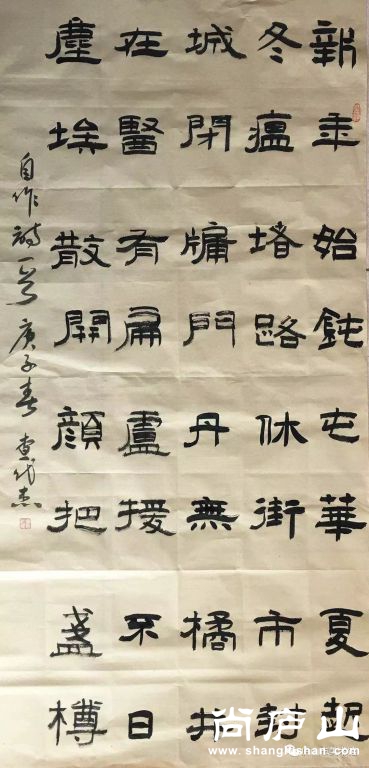 新年始鈍屯華夏起
冬瘟堵路休街市封
城閉牖門丹無橘井
在醫有扁盧援不日
塵埃散開顏把盞樽
自作詩一首 庚子春 查代杰
尚庐山
www.shanglushan.com